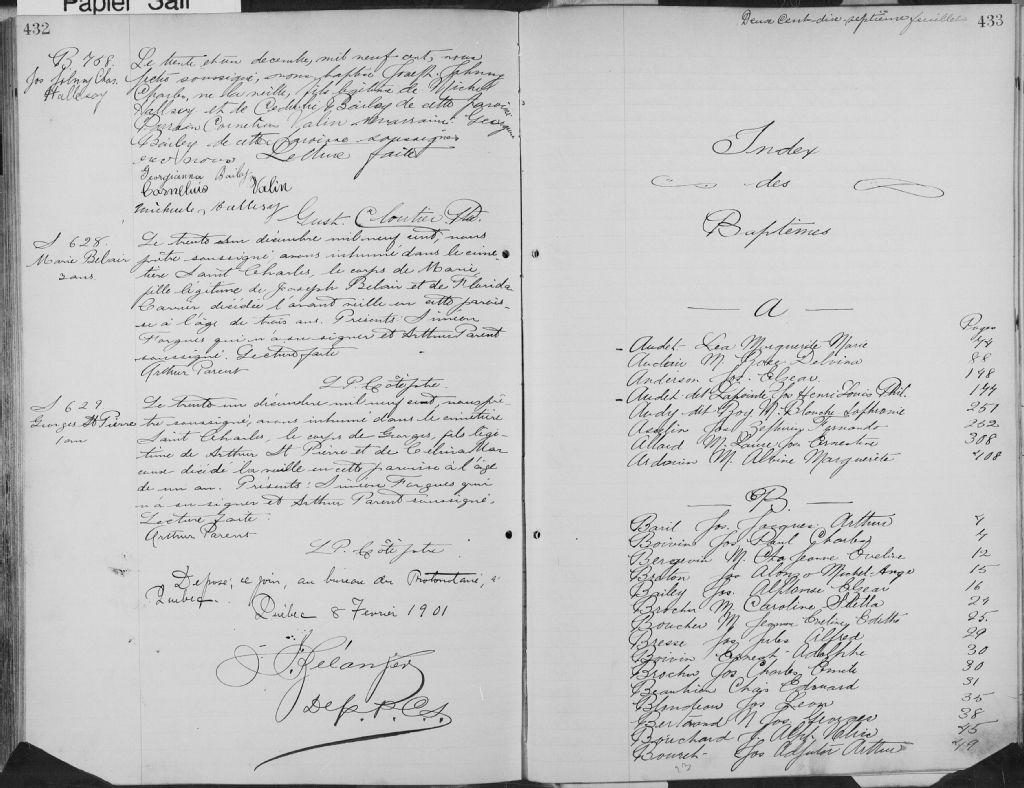 Papier Sali
432
B 768.
Jos Johny Chas.
Hallesy
Le trente et un decembre, mil neuf cent, nous
prêtre soussigné, avons baptisé Joseph Johny
Charles, né la veille, fils légitime de Michel
Hallesy et de Bailey de cette paroisse
Parrain Cornelius Valin marraine Georgianna
Bailey de cette paroisse soussignés
avec nous Lecture faite
Georgianna Bailey
Cornelius Valin
Hallesy
Gust. Cloutier Ptre.
S 628.
Marie Belair
3 ans
Le trente et un décembre mil neuf cent, nous
prêtre soussigné, avons inhumé dans le cime-
tière Saint Charles, le corps de Marie
fille légitime de Joseph Belair et de Florida
Carrier décédée l'avant veille en cette parois-
se à l'âge de trois ans. Présents: Siméon
Fargues qui n'a su signer et Arthur Parent
soussigné. Lecture faite
Arthur Parent
L. P. Côté ptre.
S 629
Georges St Pierre
1 an
Le trente un décembre mil neuf cent nous prê-
tre soussigné, avons inhumé dans le cimetière
Saint Charles, le corps de Georges, fils légi-
time de Arthur St Pierre et de Celina Mar
coux décédé la veille en cette paroisse à l'âge
de un an. Présents: Siméon Fargues qui
n'a su signer et Arthur Parent soussigné.
Lecture faite:
Arthur Parent
L. P. Côté ptre
Déposé, ce jour, au bureau du Protonotaire, à
Québec.
Québec 8 Février 1901
Dep. P.C.S.
Deux cent dix-septième feuillet
433
Index
des
Baptêmes
A
Pages
Audet Lea Marguerite Marie 44
Auclair M. Delvina 88
Anderson Jos. Elzear 198
Audet dit Lapointe Jos Henri Louis Phil. 199
Audy dit Roy M. Blanche Sophronie 251
Asselin Jos. Zephirin Fernando 262
Allard M. Laure Ernestine 308
Ardouin M. Albine Marguerite 408
B.
Baril Jos. Jacques Arthur 4
Boivin Jos Paul Charles 4
Bergevin M. Jeanne Eveline 12
Breton Jos Alonzo Michel-Ange 15
Bailey Jos. Alphonse Elzear 16
Brochu M. Caroline Stella 24
Boucher M. Eveline Odetta 25.
Bresse Jos Jules Alfred 29
Boivin Ernest Adolphe 30
Brochu Jos Charles Emile 30
Beaubien Chas Edouard 31
Blondeau Jos Leon 35
Bertrand N Jos Georges 38
Bouchard J. Alf. 45
Bouret Jos Adjutor Arthur 49